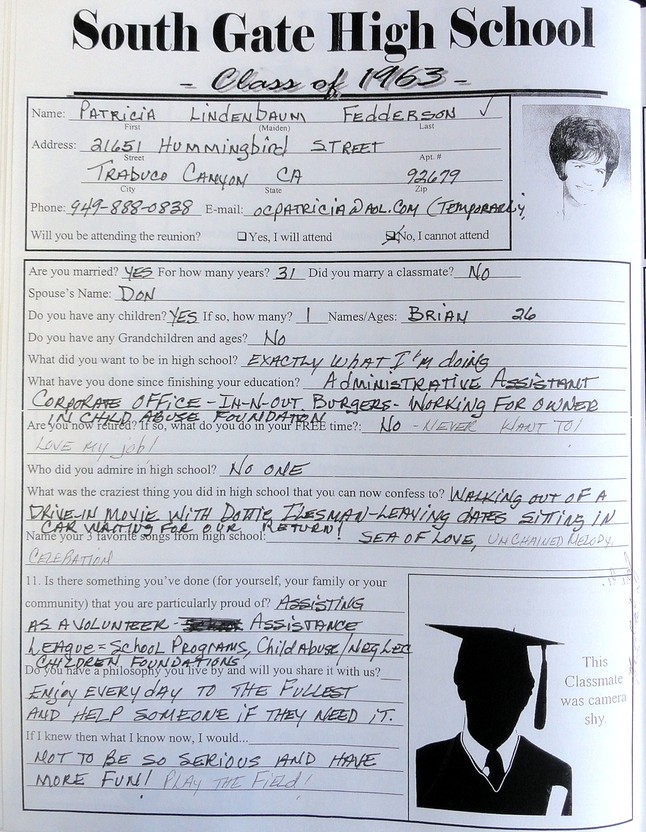 South Gate High School
- Class of 1963 -
Name: PATRICIA LINDENBAUM FEDDERSON ✓
First (Maiden) Last
Address: 21651 Hummingbird STREET
Street Apt. #
TRABUCO CANYON CA 92679
City State Zip
Phone: 949-888-0838 E-mail: OCPATRICIA@AOL.COM (TEMPORARILY)
Will you be attending the reunion? ☐Yes, I will attend ☒No, I cannot attend
Are you married? YES For how many years? 31 Did you marry a classmate? No
Spouse's Name: DON
Do you have any children? YES If so, how many? 1 Names/Ages: BRIAN 26
Do you have any Grandchildren and ages? No
What did you want to be in high school? EXACTLY WHAT I'M doing
What have you done since finishing your education? ADMINISTRATIVE ASSISTANT
CORPORATE OFFICE - IN-N-OUT BURGERS - WORKING FOR OWNER
IN CHILD ABUSE FOUNDATION
Are you now retired? If so, what do you do in your FREE time?: No - NEVER WANT TO!
LOVE MY job!
Who did you admire in high school? NO ONE
What was the craziest thing you did in high school that you can now confess to? WALKING OUT OF A
DRIVE-IN MOVIE WITH DOTTIE ILESMAN-LEAVING DATES SITTING IN
CAR WAITING FOR OUR RETURN!
Name your 3 favorite songs from high school: SEA OF LOVE, UNCHAINED MELODY,
CELEBRATION
11. Is there something you've done (for yourself, your family or your
community) that you are particularly proud of? ASSISTING
AS A VOLUNTEER - ASSISTANCE
LEAGUE = SCHOOL PROGRAMS, Child Abuse/NEGLEC
CHILDREN FOUNDATIONS
Do you have a philosophy you live by and will you share it with us?
ENJOY EVERYDAY TO THE FULLEST
AND HELP SOMEONE IF THEY NEED IT.
If I knew then what I know now, I would...
NOT TO BE SO SERIOUS AND HAVE
MORE FUN! PLAY THE FIELD!
This
Classmate
was camera
shy.